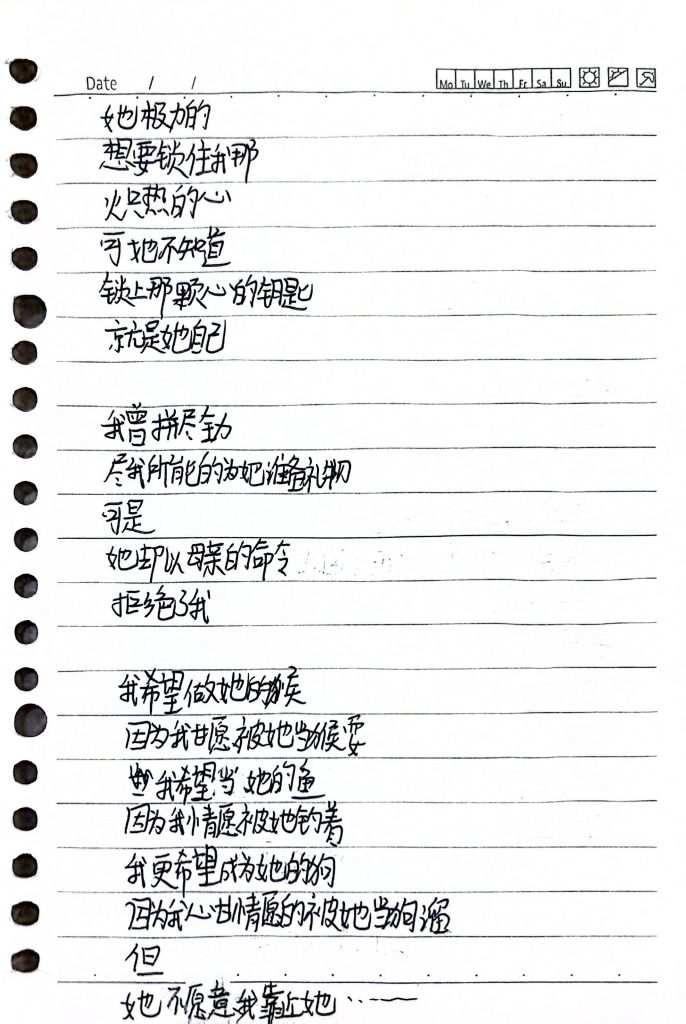 Date / /
Mo Tu We Th Fr Sa Su
她极力的
想要锁住我那
炽热的心
可她不知道
锁上那颗心的钥匙
就是她自己
我曾拼尽全力
尽我所能的为她准备礼物
可是
她却以母亲的命令
拒绝了我
我希望做她的猴
因为我甘愿被她当猴耍
我希望当她的鱼
因为我情愿被她钓着
我更希望成为她的狗
因为我心甘情愿的被她当狗溜
但
她不愿意我靠近她……